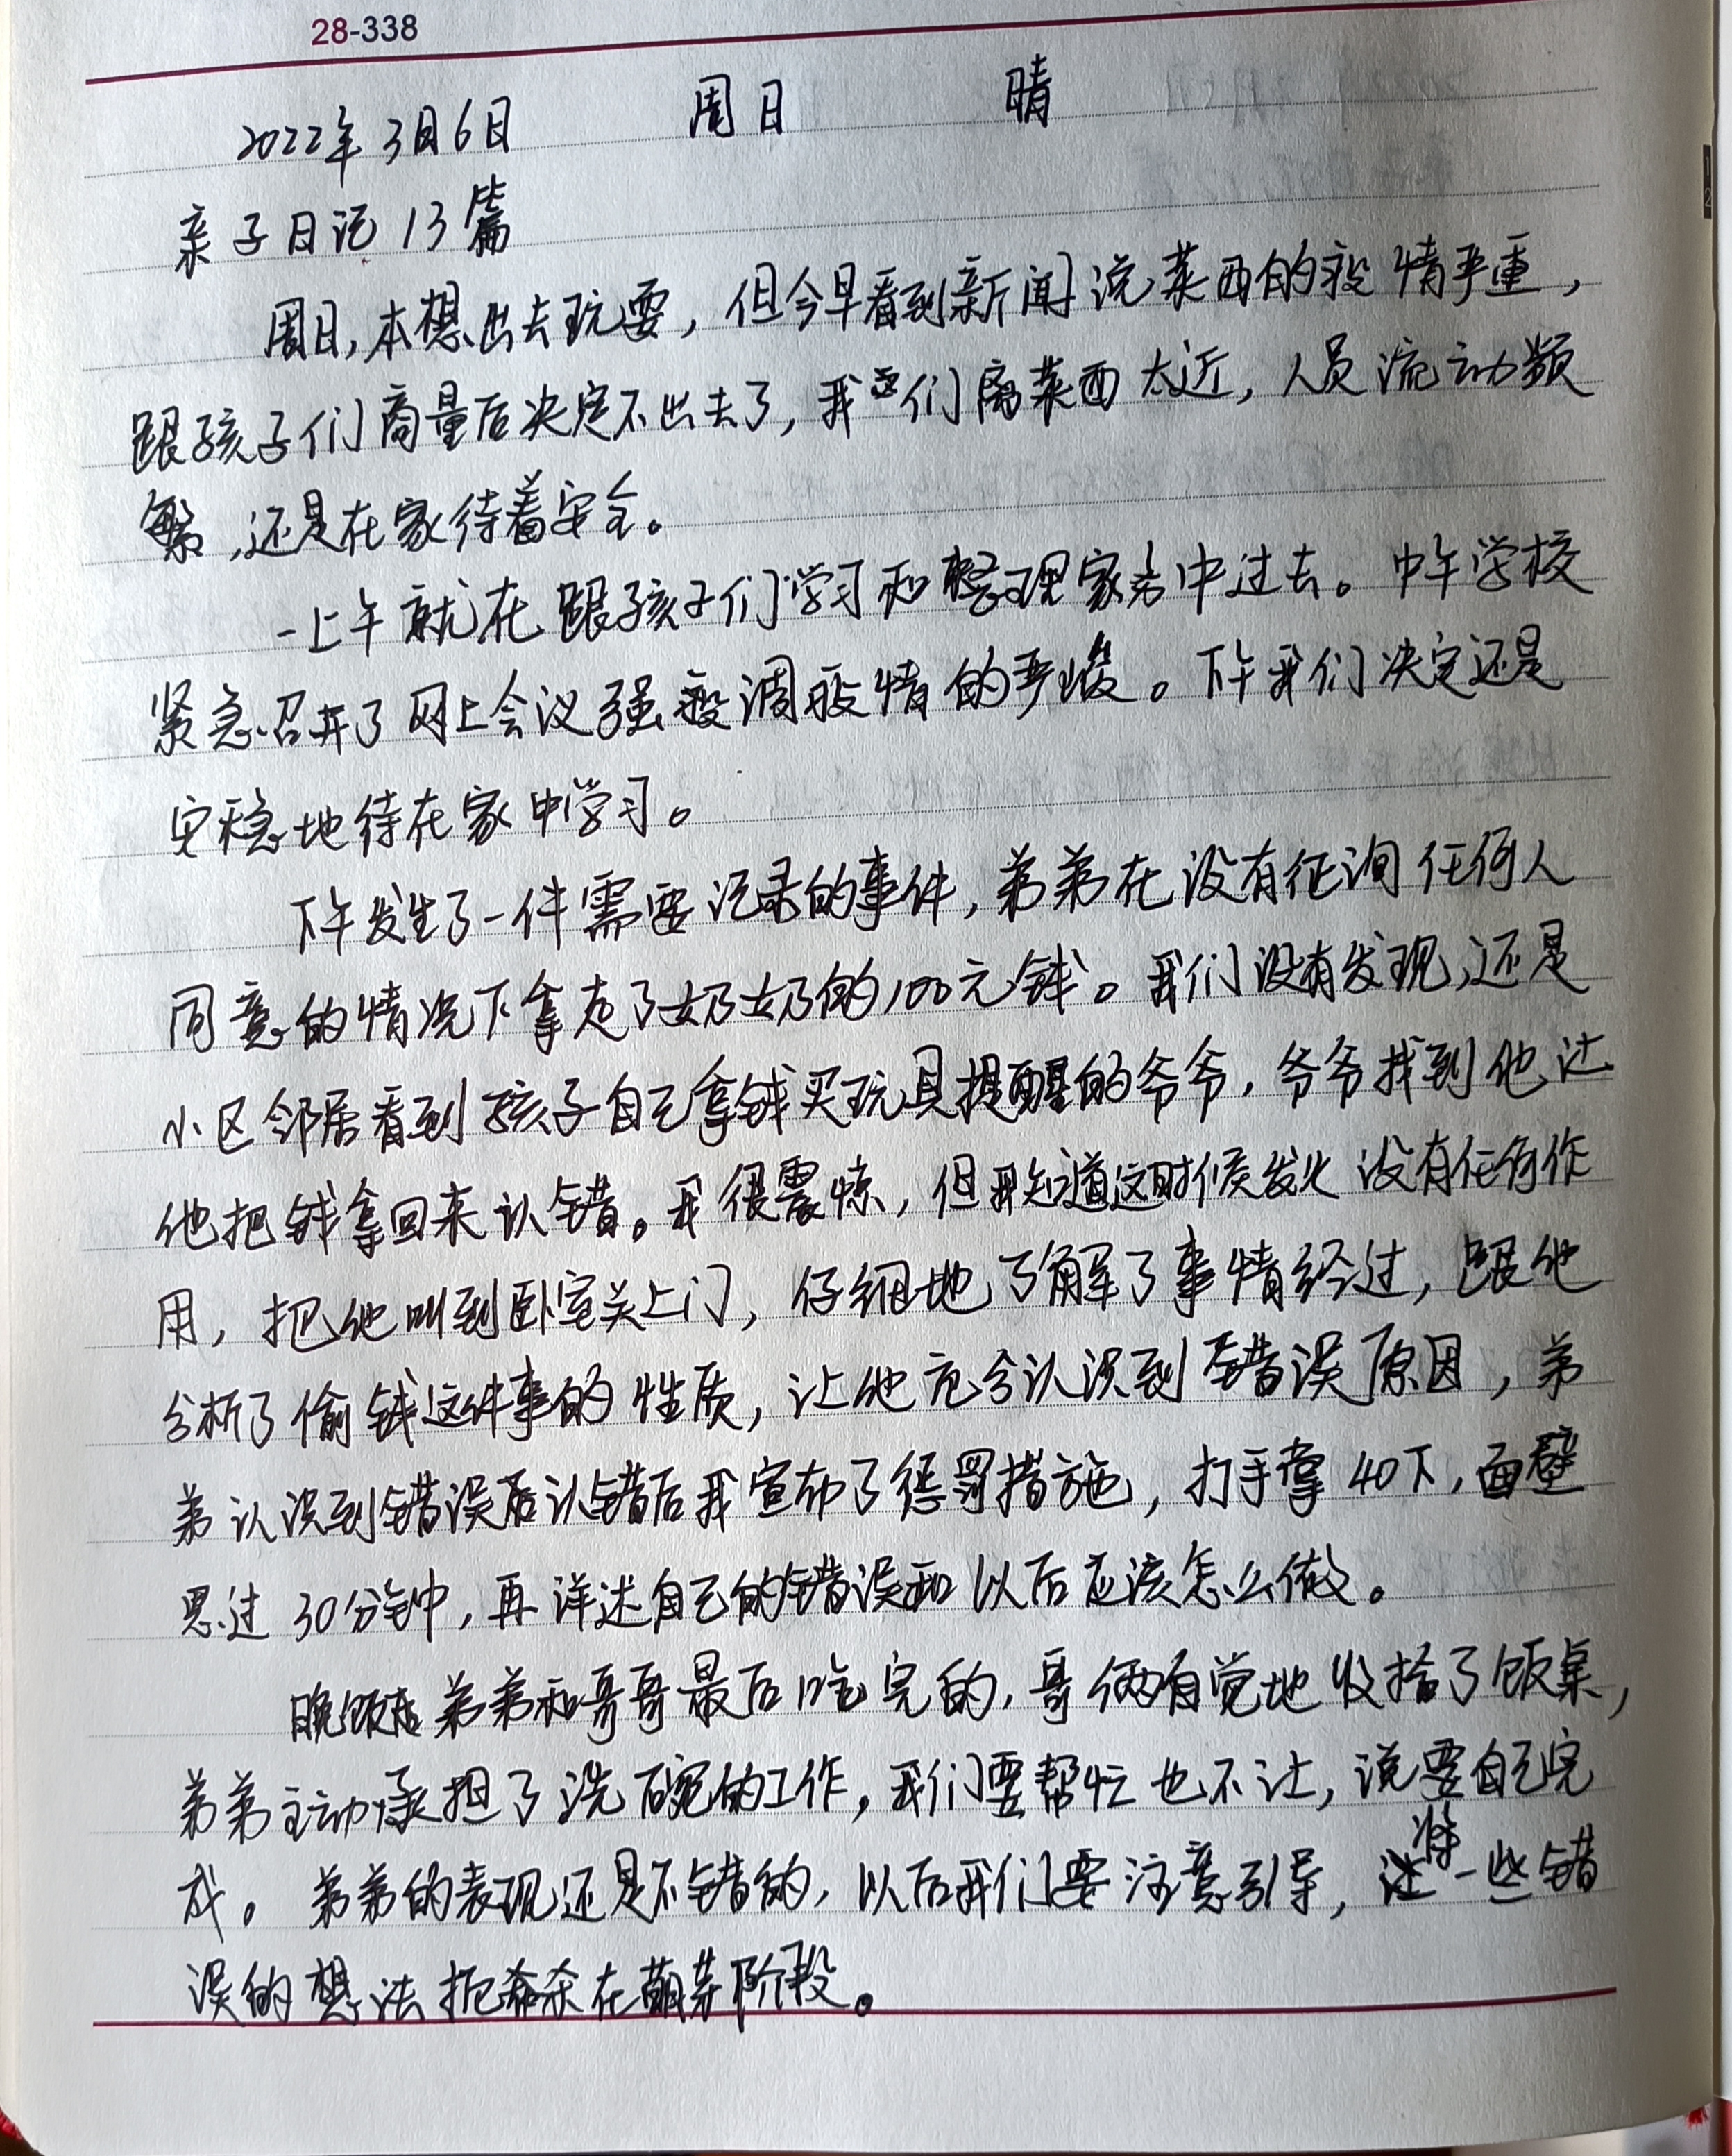 28-338
2022年3月6日 周日 晴
亲子日记13篇
周日,本想出去玩耍,但今早看到新闻说莱西的疫情严重,
跟孩子们商量后决定不出去了,我们离莱西太近,人员流动频
繁,还是在家待着安全。
一上午就在跟孩子们学习和整理家务中过去。中午学校
紧急召开了网上会议强调疫情的严峻。下午我们决定还是
安稳地待在家中学习。
下午发生了一件需要记录的事件,弟弟在没有征询任何人
同意的情况下拿走了奶奶的100元钱。我们没有发现,还是
小区邻居看到孩子自己拿钱买玩具提醒的爷爷,爷爷找到他让
他把钱拿回来认错。我很震惊,但我知道这时候发火没有任何作
用,把他叫到卧室关上门,仔细地了解了事情经过,跟他
分析了偷钱这件事的性质,让他充分认识到错误原因,弟
弟认识到错误后认错后我宣布了惩罚措施,打手掌40下,面壁
思过30分钟,再详述自己的错误和以后应该怎么做。
晚饭后弟弟和哥哥最后吃完的,哥俩自觉地收拾了饭桌,
弟弟主动承担了洗碗的工作,我们要帮忙也不让,说要自己完
成。弟弟的表现还是不错的,以后我们要注意引导,将一些错
误的想法扼杀在萌芽阶段。